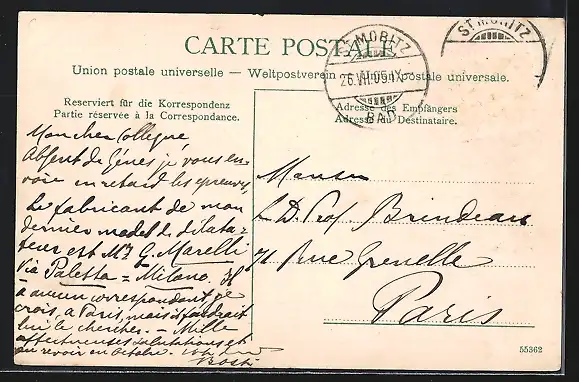 CARTE POSTALE
Union postale universelle — Weltpostverein postale universale.
ST. MORITZ
26.VII.09.IX
BAD
ST. MORITZ
Reserviert für die Korrespondenz
Partie réservée à la Correspondance.
Adresse des Empfängers
Adresse du Destinataire.
Mon cher Collègue
Absent de Gênes je vous en-
voie en retard les epreuves
Le fabricant de mon
dernier model de dilata-
teur est Mr G. Marelli
Via Palestra = Milano. Il
a aucun correspondant, je
crois, à Paris, mais il faudrait
lui le chercher. — Mille
affectueuses salutations et
au revoir en
Monsieur
le D. Prof. Brindeau
71 Rue Grenelle
Paris
55362